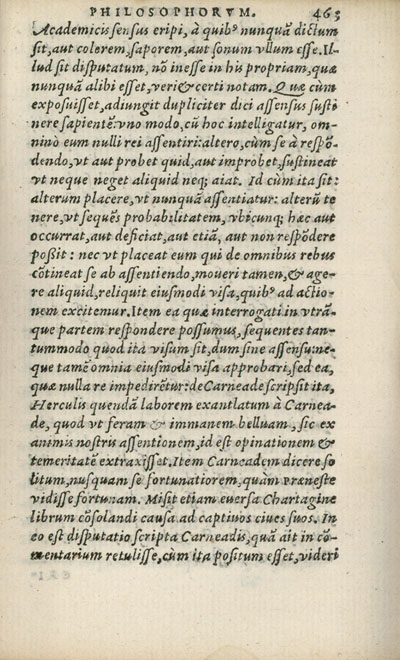 PHILOSOPHORVM. 463
Academicis sensus eripi, à quibꝰ nunquã dictum
sit, aut colorem, saporem, aut sonum vllum esse. Il-
lud sit disputatum, nõ inesse in his propriam, quæ
nunquã alibi esset, veri & certi notam. Quæ cùm
exposuisset, adiungit dupliciter dici assensus susti
nere sapientẽ: vno modo, cũ hoc intelligatur, om-
ninò eum nulli rei assentiri: altero, cùm se à respõ-
dendo, vt aut probet quid, aut improbet, sustineat
vt neque neget aliquid neq; aiat. Id cùm ita sit:
alterum placere, vt nunquã assentiatur: alterũ te
nere, vt sequẽs probabilitatem, vbicunq; hæc aut
occurrat, aut deficiat, aut etiã, aut non respõdere
poßit: nec vt placeat eum qui de omnibus rebus
cõtineat se ab assentiendo, moueri tamen, & age-
re aliquid, reliquit eiusmodi visa, quibꝰ ad actio-
nem excitemur. Item ea quæ interrogati in vtrã-
que partem respondere possumus, sequentes tan-
tummodo quod ita visum sit, dum sine assensu: ne-
que tamẽ omnia eiusmodi visa approbari, sed ea,
quæ nulla re impedirẽtur: de Carneade scripsit ita,
Herculis quendã laborem exantlatum à Carnea-
de, quod vt feram & immanem belluam, sic ex
animis nostris assentionem, id est opinationem &
temeritatẽ extraxisset. Item Carneadem dicere so
litum, nusquam se fortunatiorem, quàm Præneste
vidisse fortunam. Misit etiam euersa Chartagine
librum cõsolandi causa ad captiuos ciues suos. In
eo est disputatio scripta Carneadis, quã ait in cõ-
mentarium retulisse, cùm ita positum esset, videri